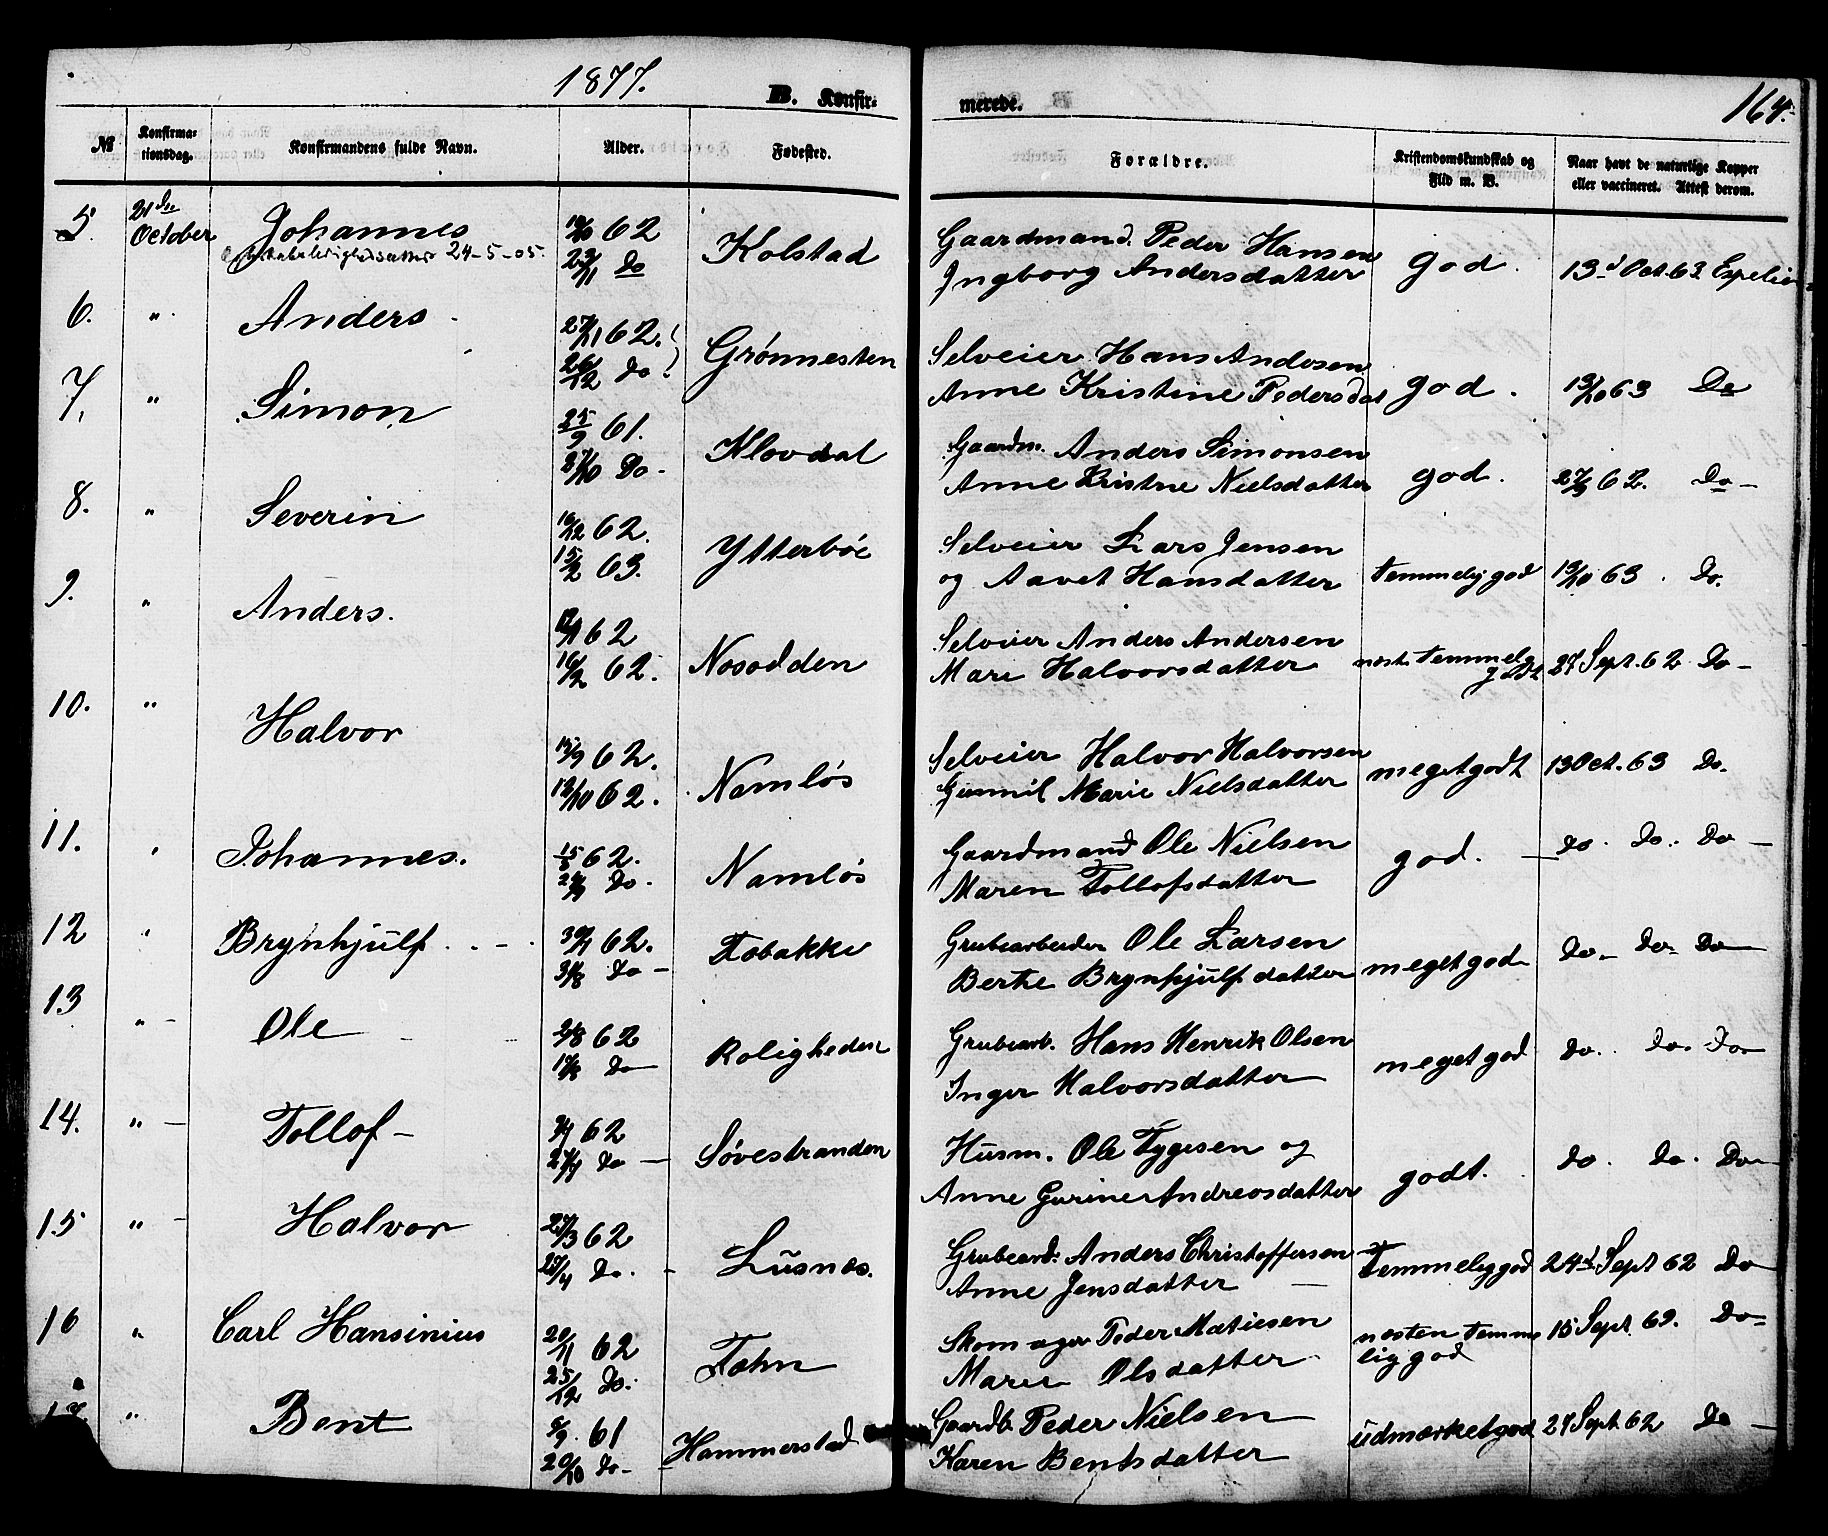 1877.
B. Konfir-
merede.
164.
№
Konfirma-
tionsdag.
Konfirmandens fulde Navn.
Alder.
Fødested.
Forældre.
Kristendomskundskab og
Flid m. V.
Naar havt de naturlige Kopper
eller vaccineret. Attest derom.
5. 21de October Johannes 62 Kolstad Gaardmand. Peder Hansen god. 13 Oct. 63
24-5-05. Do Ingborg Andersdatter
6. " Anders 27/11 62. Grönnesten Selveier Hans Andersen god. 13/10 63 Do
26/12 Do Anne Kristine Pedersdat
7. " Simon 25/9 61. Klovdal Gaardm. Anders Simonsen god. 27/9 62. Do
27/10 Do Anne Kristine Nielsdatter
8. " Severin 16/12 62. Ytterböe Selveier Lars Jensen temmelig god 13/10 63. Do.
15/2 63. og Aavet Hansdatter
9. " Anders. 62 Nosodden Selveier Anders Andersen næst. temmelig godt 27 Sept. 62 Do
16/2 62. Mari Halvorsdatter
10. " Halvor 15/9 62. Namlös Selveier Halvor Halvorsen meget godt 13 Oct. 63 Do.
12/10 62. Gunnil Marie Nielsdatter
11. " Johannes. 62. Namlös Gaardmand Ole Nielsen god. do. Do. Do
Do. Maren Tollofsdatter
12 " Brynhjulf 62. Tobakke Grubearbeider Ole Larsen meget god Do Do Do
Do Berthe Brynhjulfsdatter
13 " Ole 62 Roligheden Grubearb. Hans Henrik Olsen meget god Do. Do. Do
Do Inger Halvorsdatter
14. " Tollof 62 Sövestranden Husm. Ole Tygesen og godt. do. Do. Do
Do Anne Gurine Andreasdatter
15 " Halvor 62 Lusnes. Grubearb. Anders Christoffersen Temmelig god 24d Sept 62 Do
Do. Anne Jensdatter
16 " Carl Hansinius 20/11 62 Tahn Skomager Peder Matiesen næsten temme 15 Sept. 63. Do
25/12 Do. Marie Olsdatter lig god
17. " Bent 61 Hammerstad Gaardb. Peder Nielsen udmærket god 27 Sept. 62 Do
20/10 Do Karen Bentsdatter